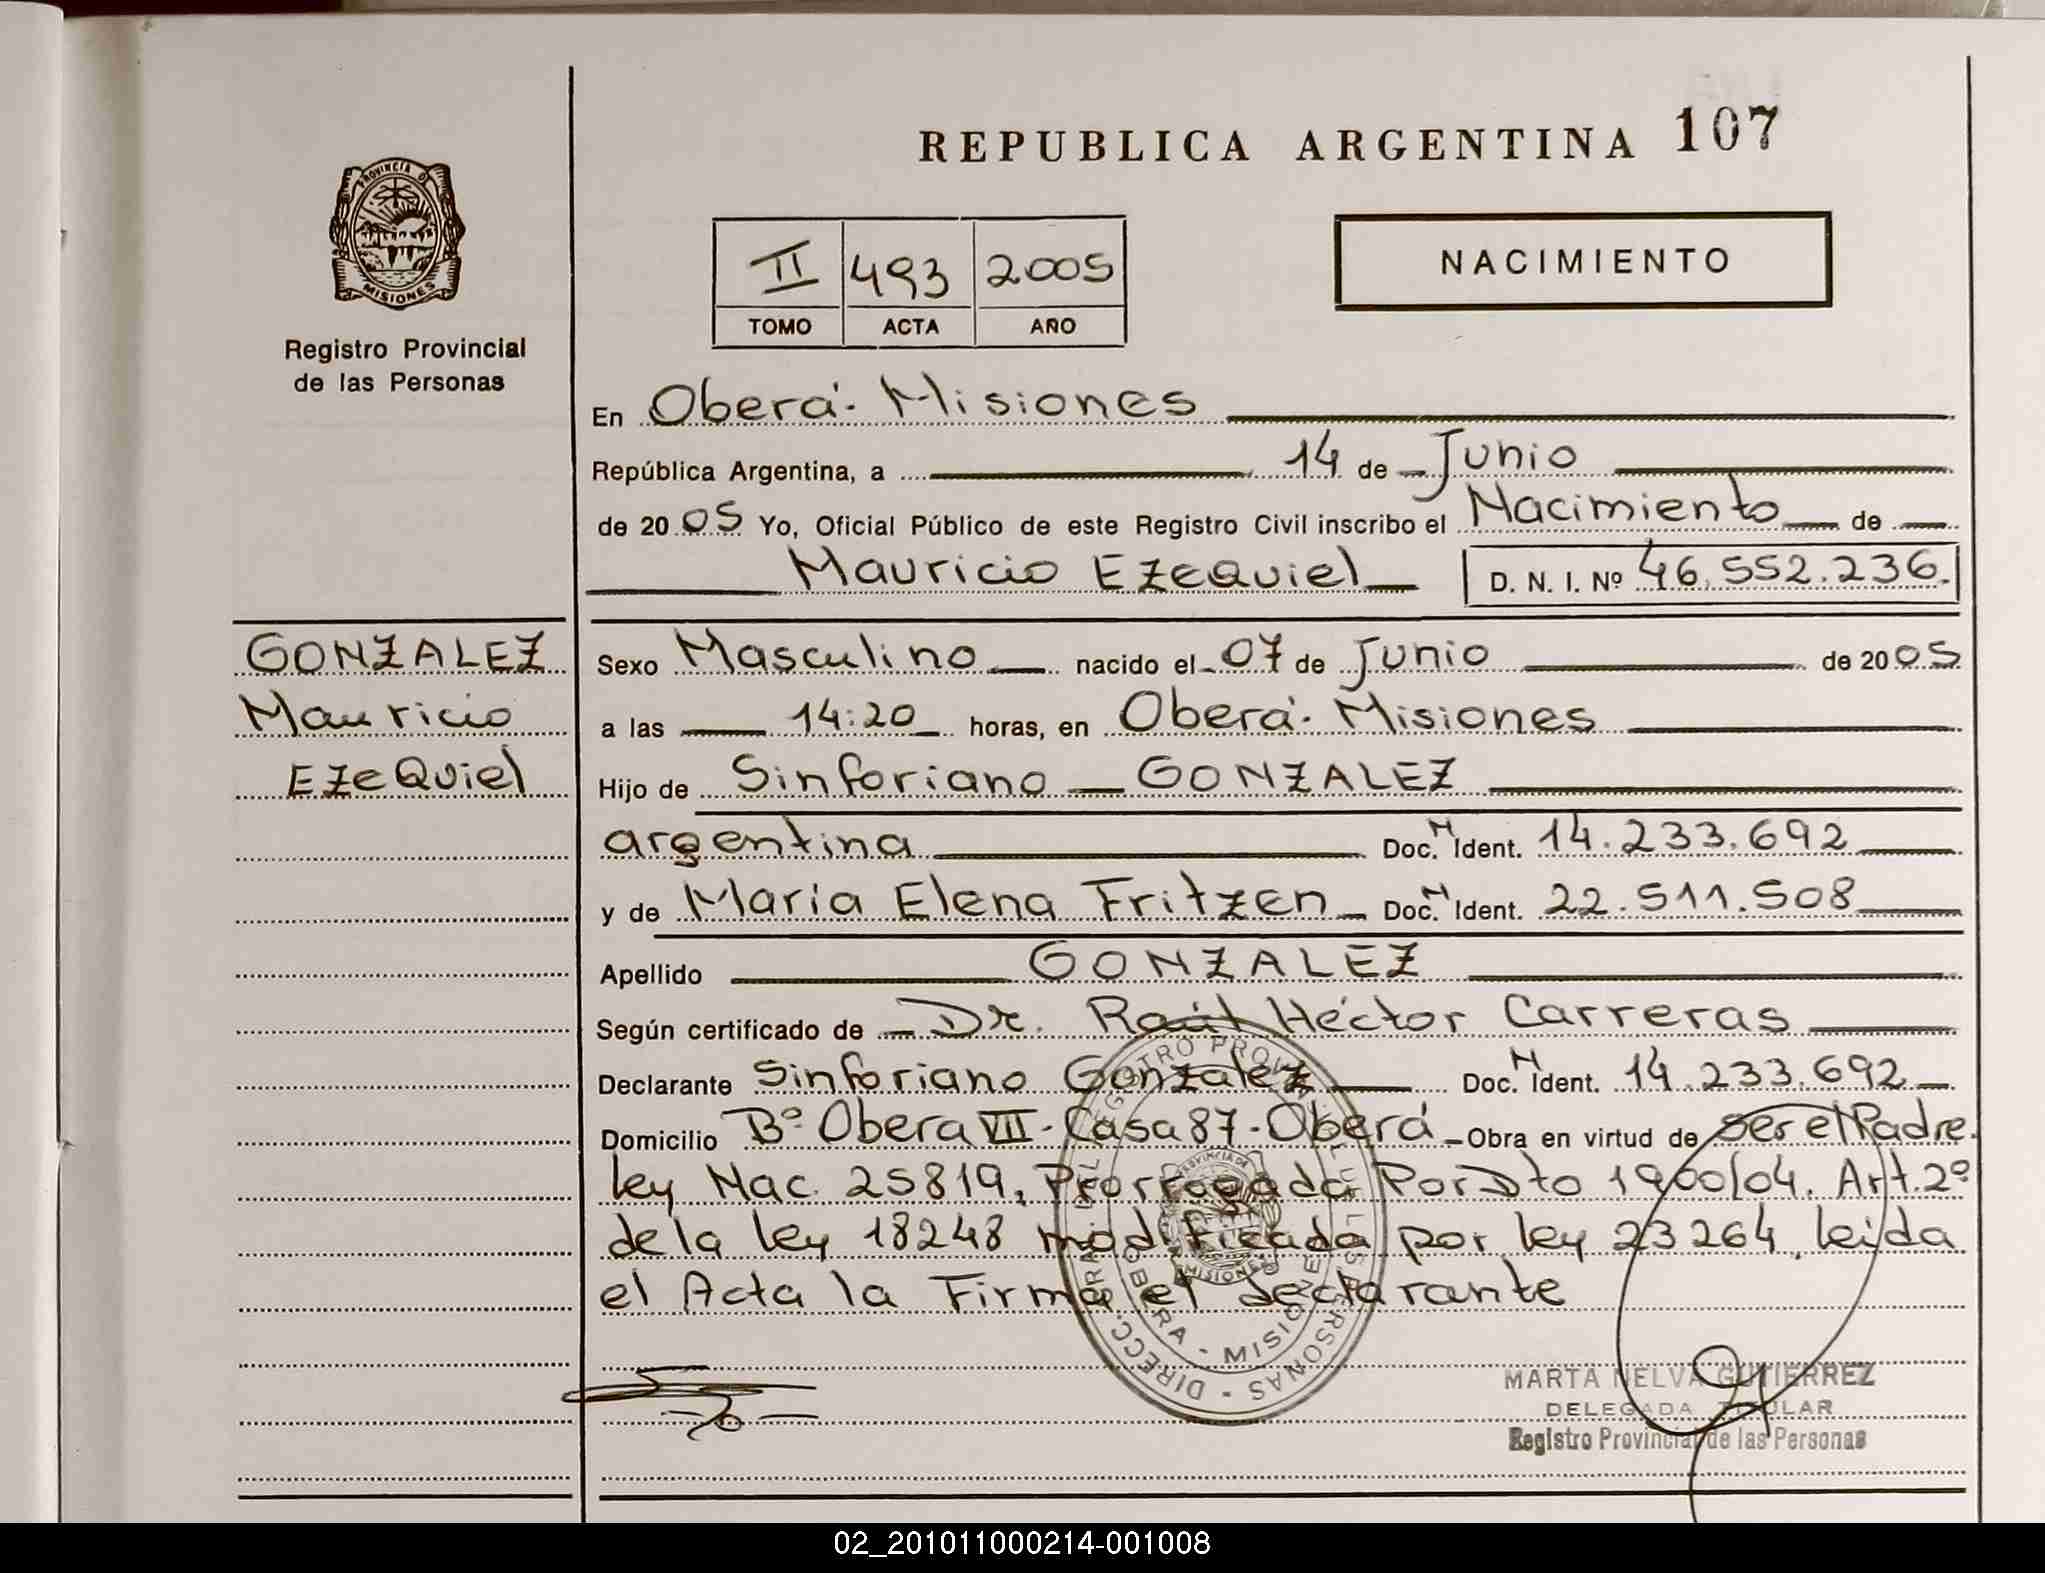 REPUBLICA ARGENTINA 107
PROVINCIA DE
MISIONES
Registro Provincial
de las Personas
II 493 2005
TOMO ACTA AÑO
NACIMIENTO
En Oberá - Misiones
República Argentina, a 14 de Junio
de 2005 Yo, Oficial Público de este Registro Civil inscribo el Nacimiento de
Mauricio Ezequiel D. N. I. Nº 46.552.236.
GONZALEZ
Mauricio
EzeQuiel
Sexo Masculino nacido el 07 de Junio de 2005
a las 14:20 horas, en Oberá - Misiones
Hijo de Sinforiano GONZALEZ
argentina Doc. N Ident. 14.233.692
y de Maria Elena Fritzen Doc. N Ident. 22.511.508
Apellido GONZALEZ
Según certificado de Dr. Raúl Héctor Carreras
Declarante Sinforiano Gonzalez Doc. N Ident. 14.233.692
Domicilio Bº Obera VII - Casa 87 - Oberá Obra en virtud de ser el Padre.
ley Nac. 25819, Prorrogada Por Dto 1900/04. Art. 2º
de la ley 18248 modificada por ley 23264, leida
el Acta la Firma el declarante
DIRECC. GRAL. DEL REGISTRO PROVINCIAL DE LAS PERSONAS
PROVINCIA DE
MISIONES
OBERA - MISIONES
MARTA NELVA GUTIERREZ
DELEGADA TITULAR
Registro Provincial de las Personas
02_201011000214-001008